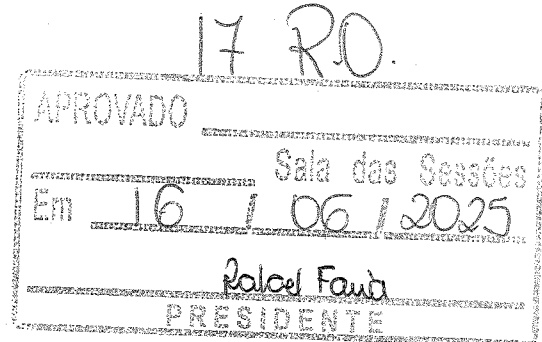 17 R.O.
APROVADO
Sala das Sessões
Em 16 / 06 / 2025
Rafael Faria
PRESIDENTE